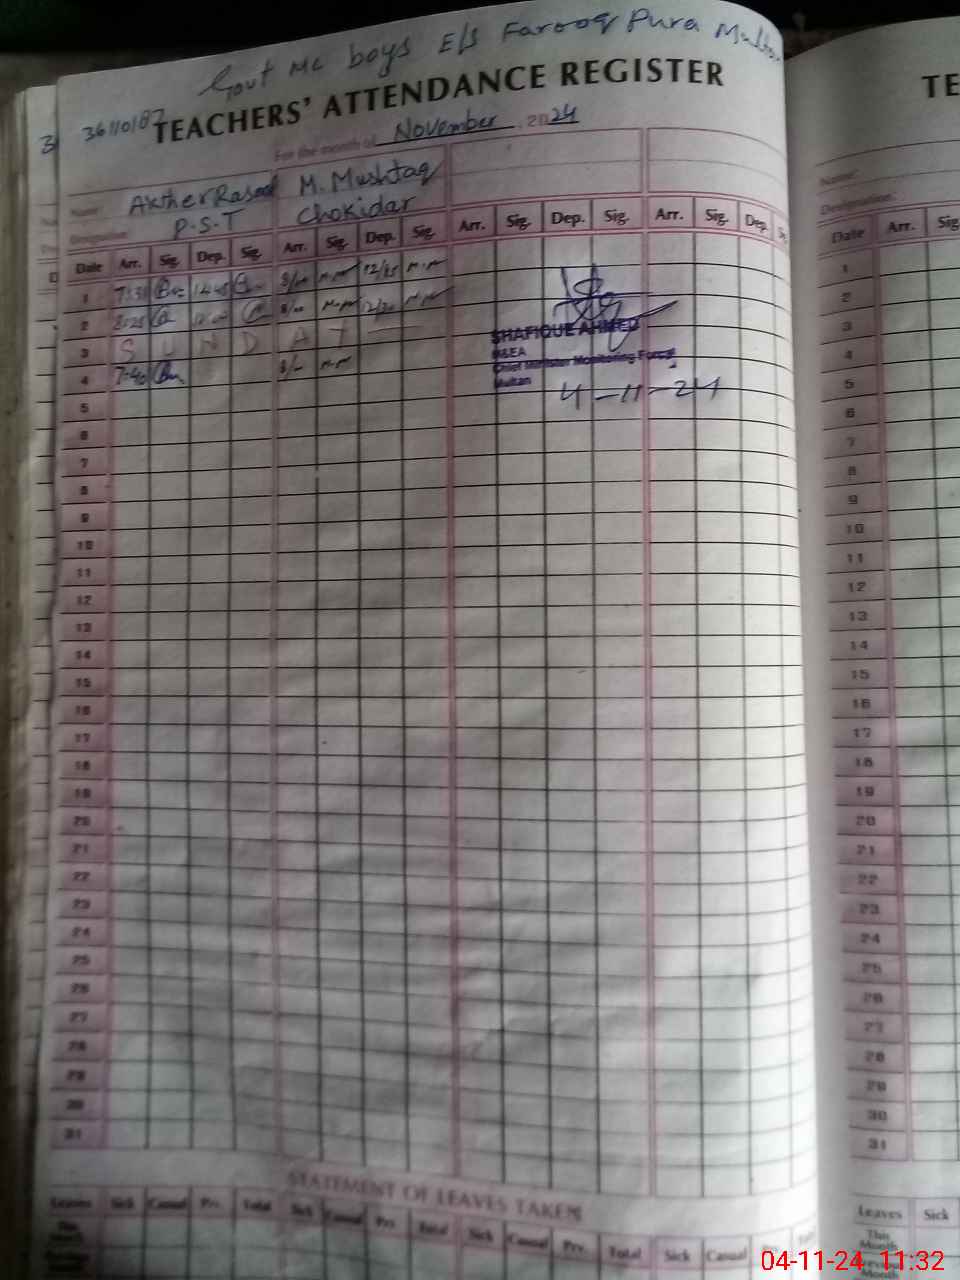 Govt MC boys E/S Farooq Pura Multan
36110187
TEACHERS' ATTENDANCE REGISTER
TE
For the month of November, 2024
Name: Akther Rasool M. Mushtaq
Name:
Designation: P.S.T Chokidar
Designation:
Date Arr. Sig. Dep. Sig. Arr. Sig. Dep. Sig. Arr. Sig. Dep. Sig. Arr. Sig. Dep.
Date Arr. Sig
1 8/00 M.M M.M
2 8/00 M.M 12/30 M.M
3 S U N D A Y
4 7:40 8/00 M.M
SHAFIQUE AHMED
M&EA
Chief Minister Monitoring Force
Multan
4-11-24
5
6
7
8
9
10
11
12
13
14
15
16
17
18
19
20
21
22
23
24
25
26
27
28
29
30
31
1
2
3
4
5
6
7
8
9
10
11
12
13
14
15
16
17
18
19
20
21
22
23
24
25
26
27
28
29
30
31
STATEMENT OF LEAVES TAKEN
Leaves Sick Casual Prv. Total Sick Casual Prv. Total Sick Casual Prv. Total Sick Casual
Leaves Sick
This Month
This Month
04-11-24 11:32